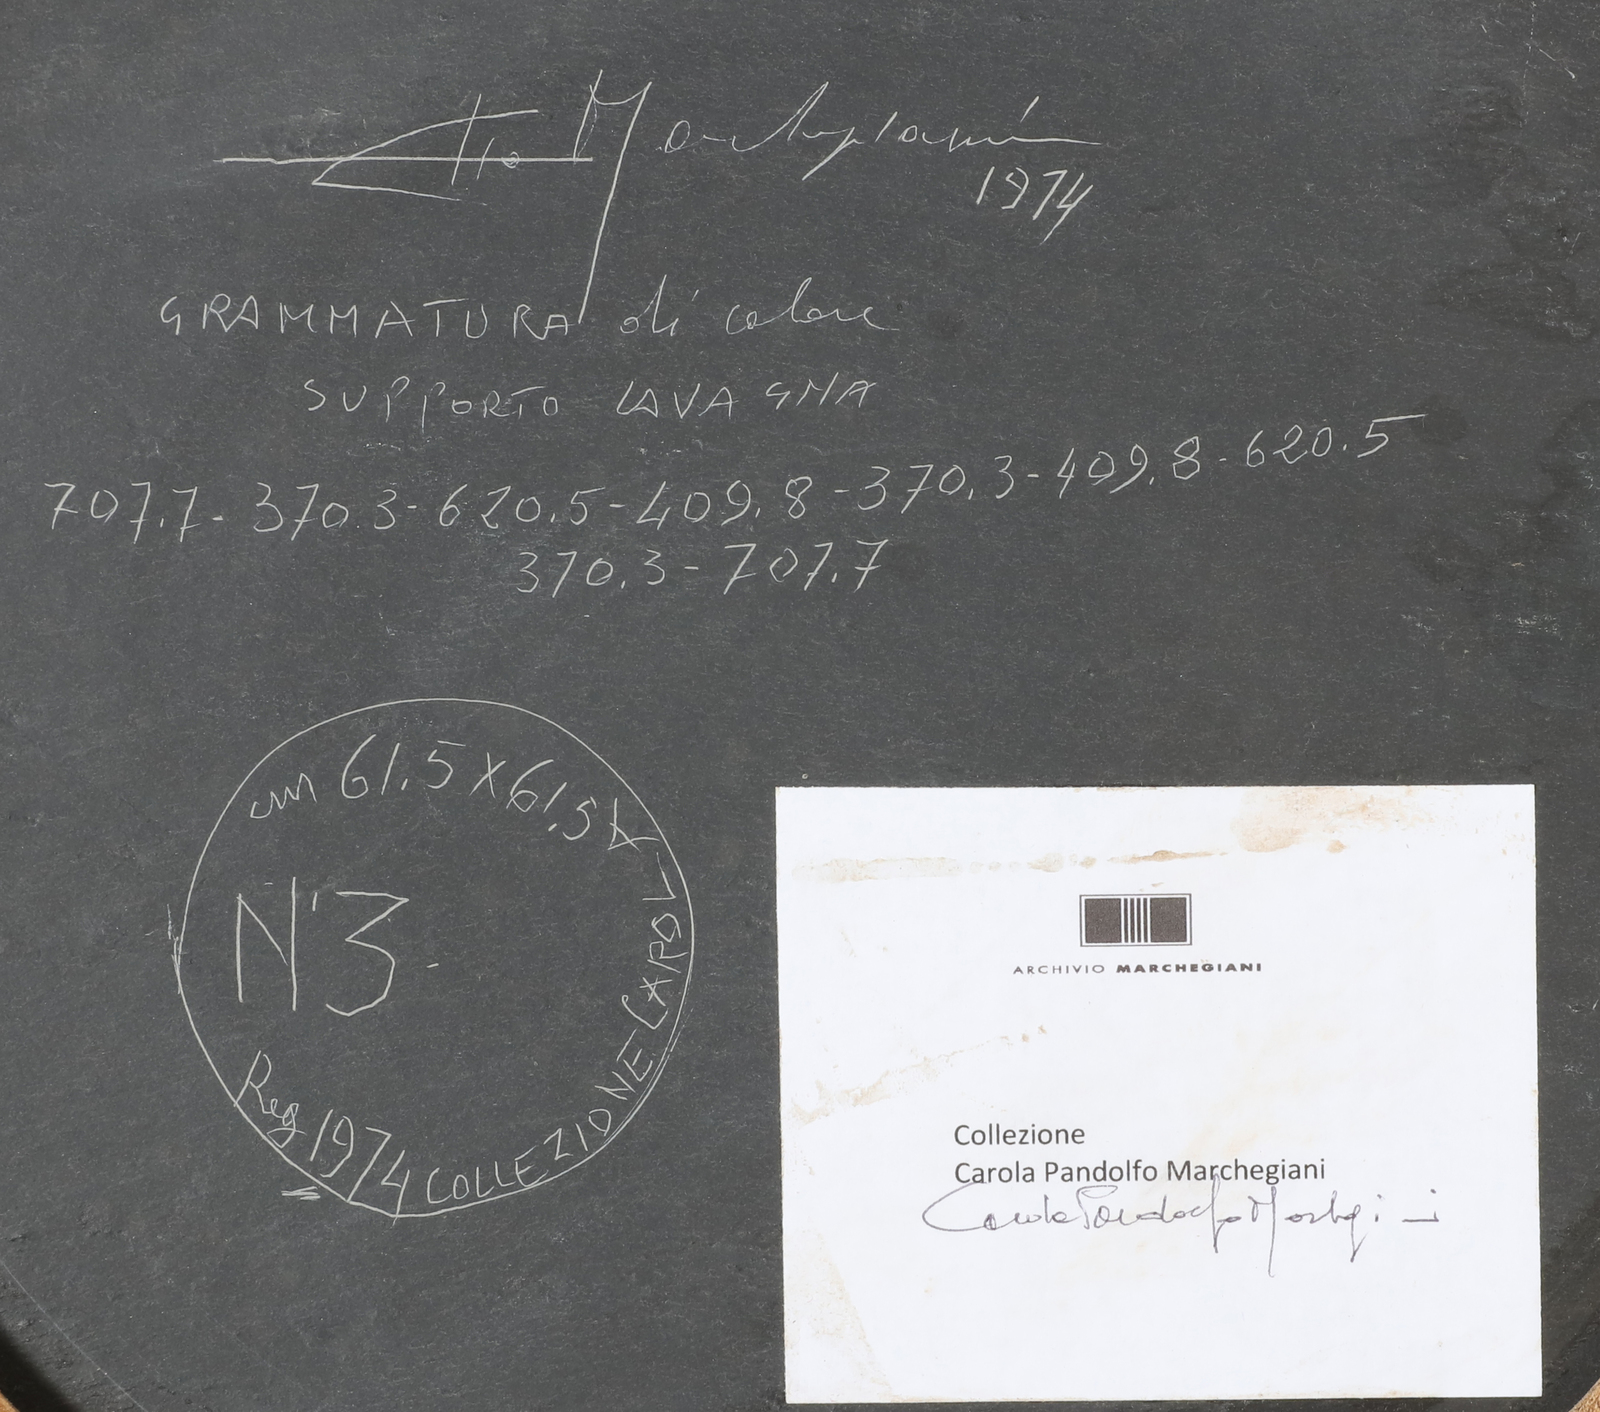 Elio Marchegiani
1974
GRAMMATURA di colore
SUPPORTO LAVAGNA
707.7-370.3-620.5-409.8-370.3-409.8-620.5
370.3-707.7
cm 61.5X61.5
N°3.
Reg 1974 COLLEZIONE CAROLA
ARCHIVIO MARCHEGIANI
Collezione
Carola Pandolfo Marchegiani
Carola Pandolfo Marchegiani